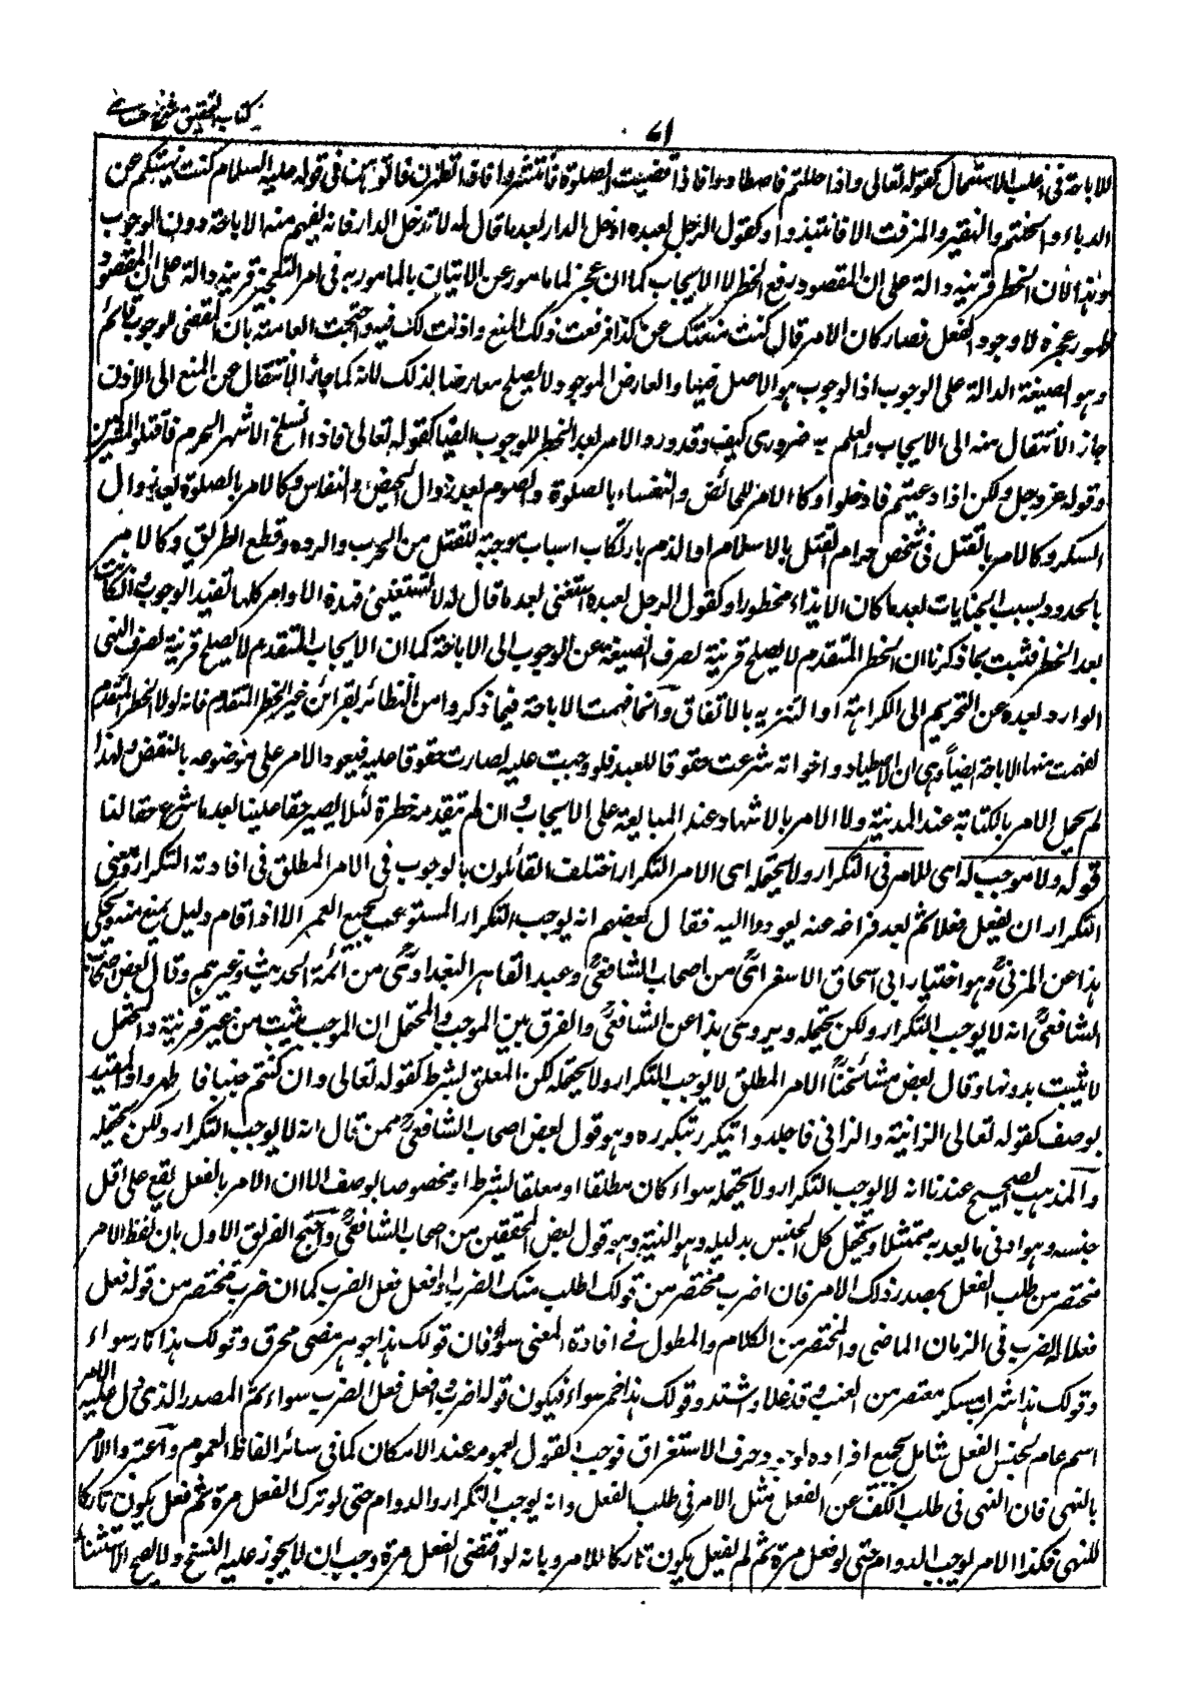 كتاب التحقيق شرح حسامى
٧١
للاباحة فى اغلب الاستعمال كقوله تعالى واذا حللتم فاصطادوا فاذا قضيت الصلوة فانتشروا فاذا تطهرن فأتوهن وفى قوله عليه السلام كنت نهيتكم عن
الدباء والحنتم والنقير والمزفت الا فانتبذوا وكقول الرجل لعبده ادخل الدار بعد ما قال له لا تدخل الدار فانه يفهم منه الاباحة دون الوجوب
وهذا لان الحظر قرينة دالة على ان المقصود رفع الحظر لا الايجاب كما ان عجز المامور عن الاتيان بالمامور به فى امر التعجيز قرينة دالة على ان المقصود
ظهور عجزه لا وجود الفعل فصار كان الآمر قال كنت منعتك عن كذا فرفعت ذلك المنع واذنت لك فيه واحتجت العامة بان المقتضى للوجوب قائم
وهو الصيغة الدالة على الوجوب اذ الوجوب هو الاصل فيها والعارض الموجود لا يصلح معارضا لذلك لانه كما جاز الانتقال عن المنع الى الاذن
جاز الانتقال منه الى الايجاب والعلم به ضرورى كيف وقد ورد الامر بعد الحظر للوجوب ايضا كقوله تعالى فاذا انسلخ الاشهر الحرم فاقتلوا المشركين
وقوله عز وجل ولكن اذا دعيتم فادخلوا وكالامر للحائض والنفساء بالصلوة والصوم بعد زوال الحيض والنفاس وكالامر بالصلوة بعد زوال
السكر وكالامر بالقتل فى شخص حرام القتل بالاسلام او الذم بارتكاب اسباب موجبة للقتل من الحرب والردة وقطع الطريق وكالامر
بالحدود بسبب الجنايات بعد ما كان الايذاء محظورا وكقول الرجل لعبده اسقنى بعد ما قال له لا تسقنى فهذه الاوامر كلها تفيد الوجوب وان كانت
بعد الحظر فثبت بما ذكرنا ان الحظر المتقدم لا يصلح قرينة لصرف الصيغة عن الوجوب الى الاباحة كما ان الايجاب المتقدم لا يصلح قرينة لصرف النهى
الوارد بعده عن التحريم الى الكراهة او التنزيه بالاتفاق وانما فهمت الاباحة فيما ذكروا من النظائر بقرائن غير الحظر المتقدم فانه لولا الحظر المتقدم
لفهمت منها الاباحة ايضا وهى ان الاصطياد واخواته شرعت حقوقا للعبد فلو وجبت عليه لصارت حقوقا عليه فيعود الامر على موضوعه بالنقض ولهذا
لم يحمل الامر بالكتابة عند المداينة ولا الامر بالاشهاد عند المبايعة على الايجاب وان لم يتقدمه حظر لئلا يصير حقا علينا بعد ما شرع حقا لنا
قوله ولا موجب له اى للامر فى التكرار ولا يحتمله اى الامر التكرار اختلف القائلون بالوجوب فى الامر المطلق فى افادته التكرار ومعنى
التكرار ان يفعل فعلا ثم بعد فراغه عنه يعود اليه فقال بعضهم انه يوجب التكرار المستوعب لجميع العمر الا اذا قام دليل يمنع منه ويحكى
هذا عن المزنى وهو اختيار ابى اسحاق الاسفرائنى من اصحاب الشافعى وعبد القاهر البغدادى من ائمة الحديث وغيرهم وقال بعض اصحاب
الشافعى انه لا يوجب التكرار ولكن يحتمله ويروى هذا عن الشافعى والفرق بين الموجب والمحتمل ان الموجب يثبت من غير قرينة والمحتمل
لا يثبت بدونها وقال بعض مشائخنا الامر المطلق لا يوجب التكرار ولا يحتمله لكن المعلق بشرط كقوله تعالى وان كنتم جنبا فاطهروا والمقيد
بوصف كقوله تعالى الزانية والزانى فاجلدوا يتكرر بتكرره وهو قول بعض اصحاب الشافعى ممن قال انه لا يوجب التكرار ولكن يحتمله
والمذهب الصحيح عندنا انه لا يوجب التكرار ولا يحتمله سواء كان مطلقا او معلقا بشرط او مخصوصا بوصف الا ان الامر بالفعل يقع على اقل
جنسه وهو ادنى ما يعد به ممتثلا ويحتمل كل الجنس بدليله وهو النية وهو قول بعض المحققين من اصحاب الشافعى واحتج الفريق الاول بان لفظ الامر
مختصر من طلب الفعل بمصدر ذلك الامر فان اضرب مختصر من قولك اطلب منك الضرب او افعل فعل الضرب كما ان ضرب مختصر من قوله فعل
فعلا الضرب فى الزمان الماضى والمختصر من الكلام والمطول فى افادة المعنى سواء فان قولك هذا جوهر مضئ محرق وقولك هذا نار سواء
وقولك هذا شراب مسكر معتصر من العنب وقد غلا واشتد وقولك هذا خمر سواء فيكون قوله اضرب وافعل فعل الضرب سواء ثم المصدر الذى دل عليه الامر
اسم عام لجنس الفعل شامل لجميع افراده لوجود حرف الاستغراق فوجب القول بعمومه عند الامكان كما فى سائر الفاظ العموم واعتبروا الامر
بالنهى فان النهى فى طلب الكف عن الفعل مثل الامر فى طلب الفعل وانه يوجب التكرار والدوام حتى لو ترك الفعل مرة ثم فعل يكون تاركا
للنهى فكذا الامر يوجب الدوام حتى لو فعل مرة ثم لم يفعل يكون تاركا للامر وبانه لو اقتضى الفعل مرة وجب ان لا يجوز عليه النسخ ولا يصح الاستثناء